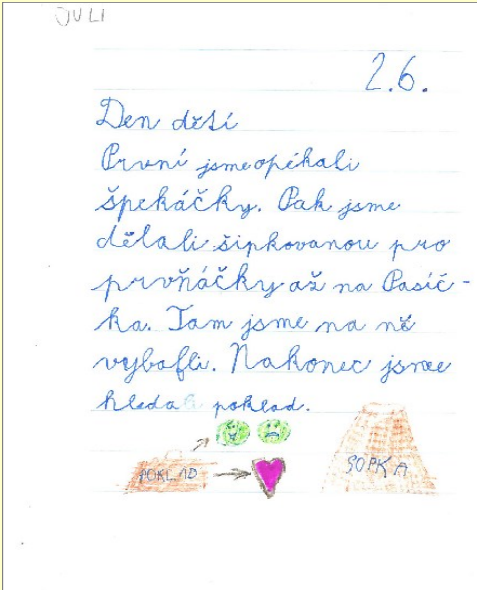 JULI
2.6.
Den dětí
První jsme opékali
špekáčky. Pak jsme
dělali šipkovanou pro
prvňáčky až na Pasíč-
ka. Tam jsme na ně
vybafli. Nakonec jsme
hledali poklad.
POKLAD
SOPKA